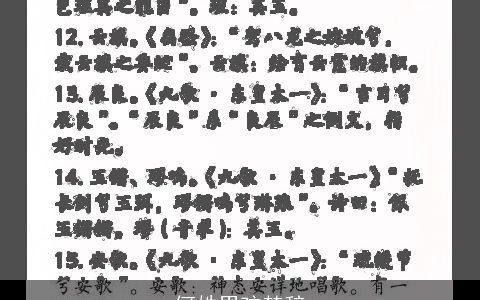 12. 云旗。《离骚》：“驾八龙之婉婉兮，
载云旗之委蛇”。云旗：绘有云霓的旗帜。
13. 辰良。《九歌·东皇太一》：“吉日兮
辰良”。“辰良”系“良辰”之倒文，指
好时光。
14. 玉锵、璆鸣。《九歌·东皇太一》“抚
长剑兮玉珥，璆锵鸣兮琳琅”。
玉锵锵，璆（）：美玉。
15. 安歌。《九歌·东皇太一》：“疏缓节
兮安歌”。安歌：神态安详地唱歌。有一